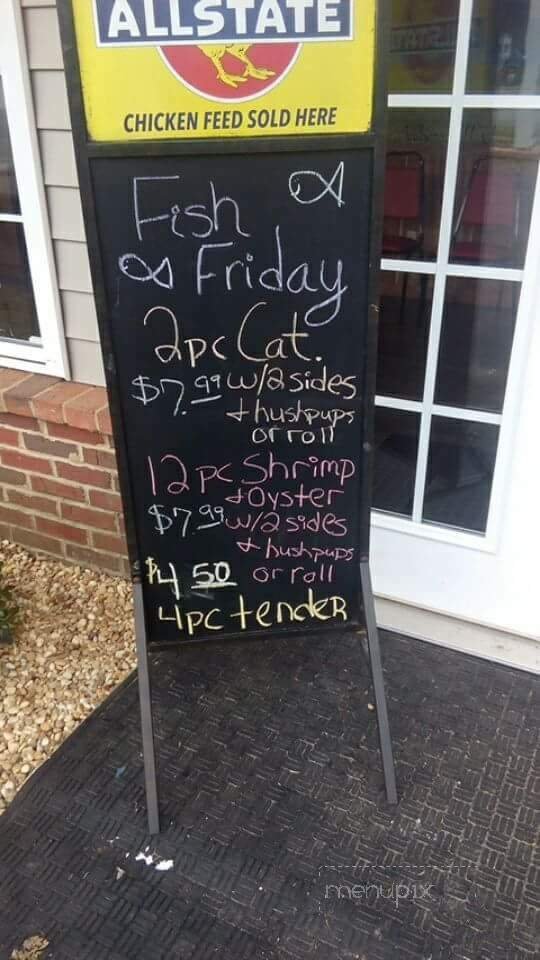 ALLSTATE
CHICKEN FEED SOLD HERE
Fish
Friday
2pc Cat.
$7.99 w/2 sides
+ hushpups
or roll
12 pc Shrimp
+ Oyster
$7.99 w/2 sides
+ hushpups
$4 50 or roll
4pc tender
menupix